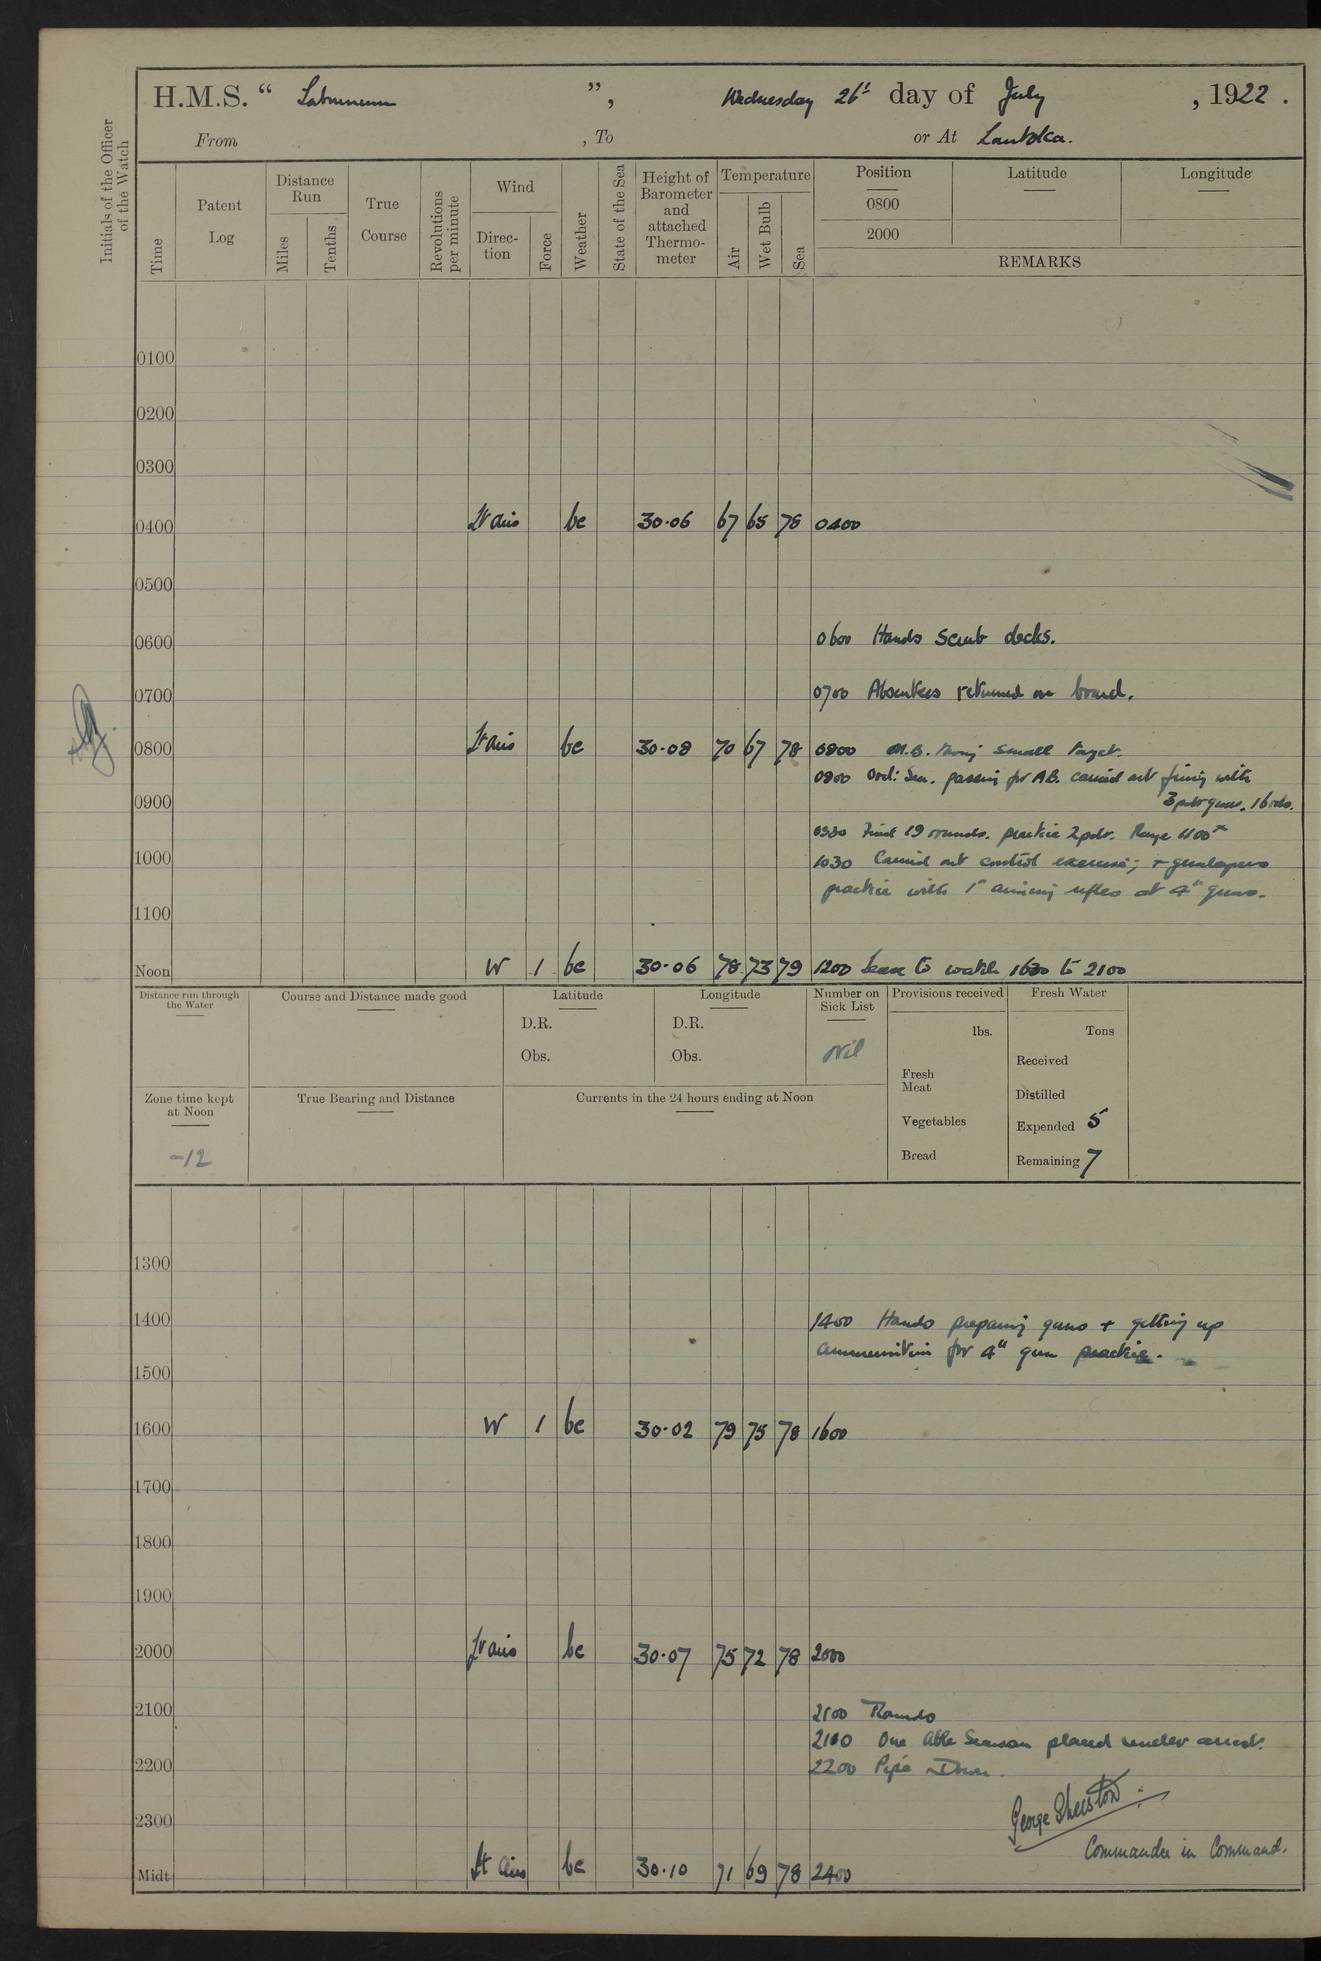 H.M.S. " Laburnum ", Wednesday 26th day of July, 1922.
From , To or At Lautoka.
Initials of the Officer of the Watch
Time
Patent Log
Distance Run
Miles
Tenths
True Course
Revolutions per minute
Wind
Direc-tion
Force
Weather
State of the Sea
Height of Barometer and attached Thermo-meter
Temperature
Air
Wet Bulb
Sea
Position
Latitude
Longitude
0800
2000
REMARKS
0100
0200
0300
0400 Lt airs bc 30.06 67 65 78 0400
0500
0600 0600 Hands scrub decks.
0700 0700 Absentees returned on board.
0800 Lt airs bc 30.08 70 67 78 0800 M.B. small target.
0900 Ord: Sea. passing for AB. carried out firing with
0900 3 pdr guns. 16 rds.
0930 Fired 19 rounds. practice 2pdr. Range 1100x
1000 1030 Carried out control exercise; + gunlayers
practice with 1" aiming rifles at 4" guns.
1100
Noon W 1 bc 30.06 78 73 79 1200 Leave to watch 1630 to 2100
Distance run through the Water
Course and Distance made good
Latitude
D.R.
Obs.
Longitude
D.R.
Obs.
Number on Sick List
Nil
Provisions received
lbs.
Fresh Meat
Vegetables
Bread
Fresh Water
Tons
Received
Distilled
Expended 5
Remaining 7
Zone time kept at Noon
-12
True Bearing and Distance
Currents in the 24 hours ending at Noon
1300
1400 1400 Hands preparing guns + getting up
ammunition for 4" gun practice.
1500
1600 W 1 bc 30.02 79 75 78 1600
1700
1800
1900
2000 Lt airs bc 30.07 75 72 78 2000
2100 2100 Rounds
2110 One Able Seaman placed under arrest.
2200 2200 Pipe Down.
George Sherston
2300
Commander in Command.
Midt Lt airs bc 30.10 71 69 78 2400